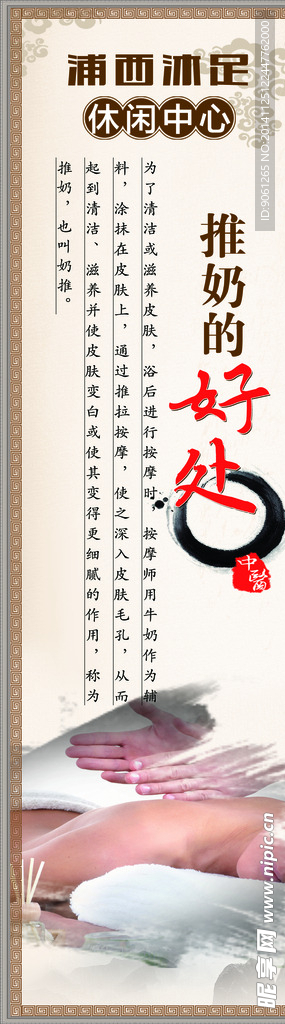 浦西沐足
休闲中心
推奶的
好处
中醫
为了清洁或滋养皮肤，浴后进行按摩时，按摩师用牛奶作为辅
料，涂抹在皮肤上，通过推拉按摩，使之深入皮肤毛孔，从而
起到清洁、滋养并使皮肤变白或使其变得更细腻的作用，称为
推奶，也叫奶推。
ID:9061265 NO.20141125122417762000
昵享网 www.nipic.cn